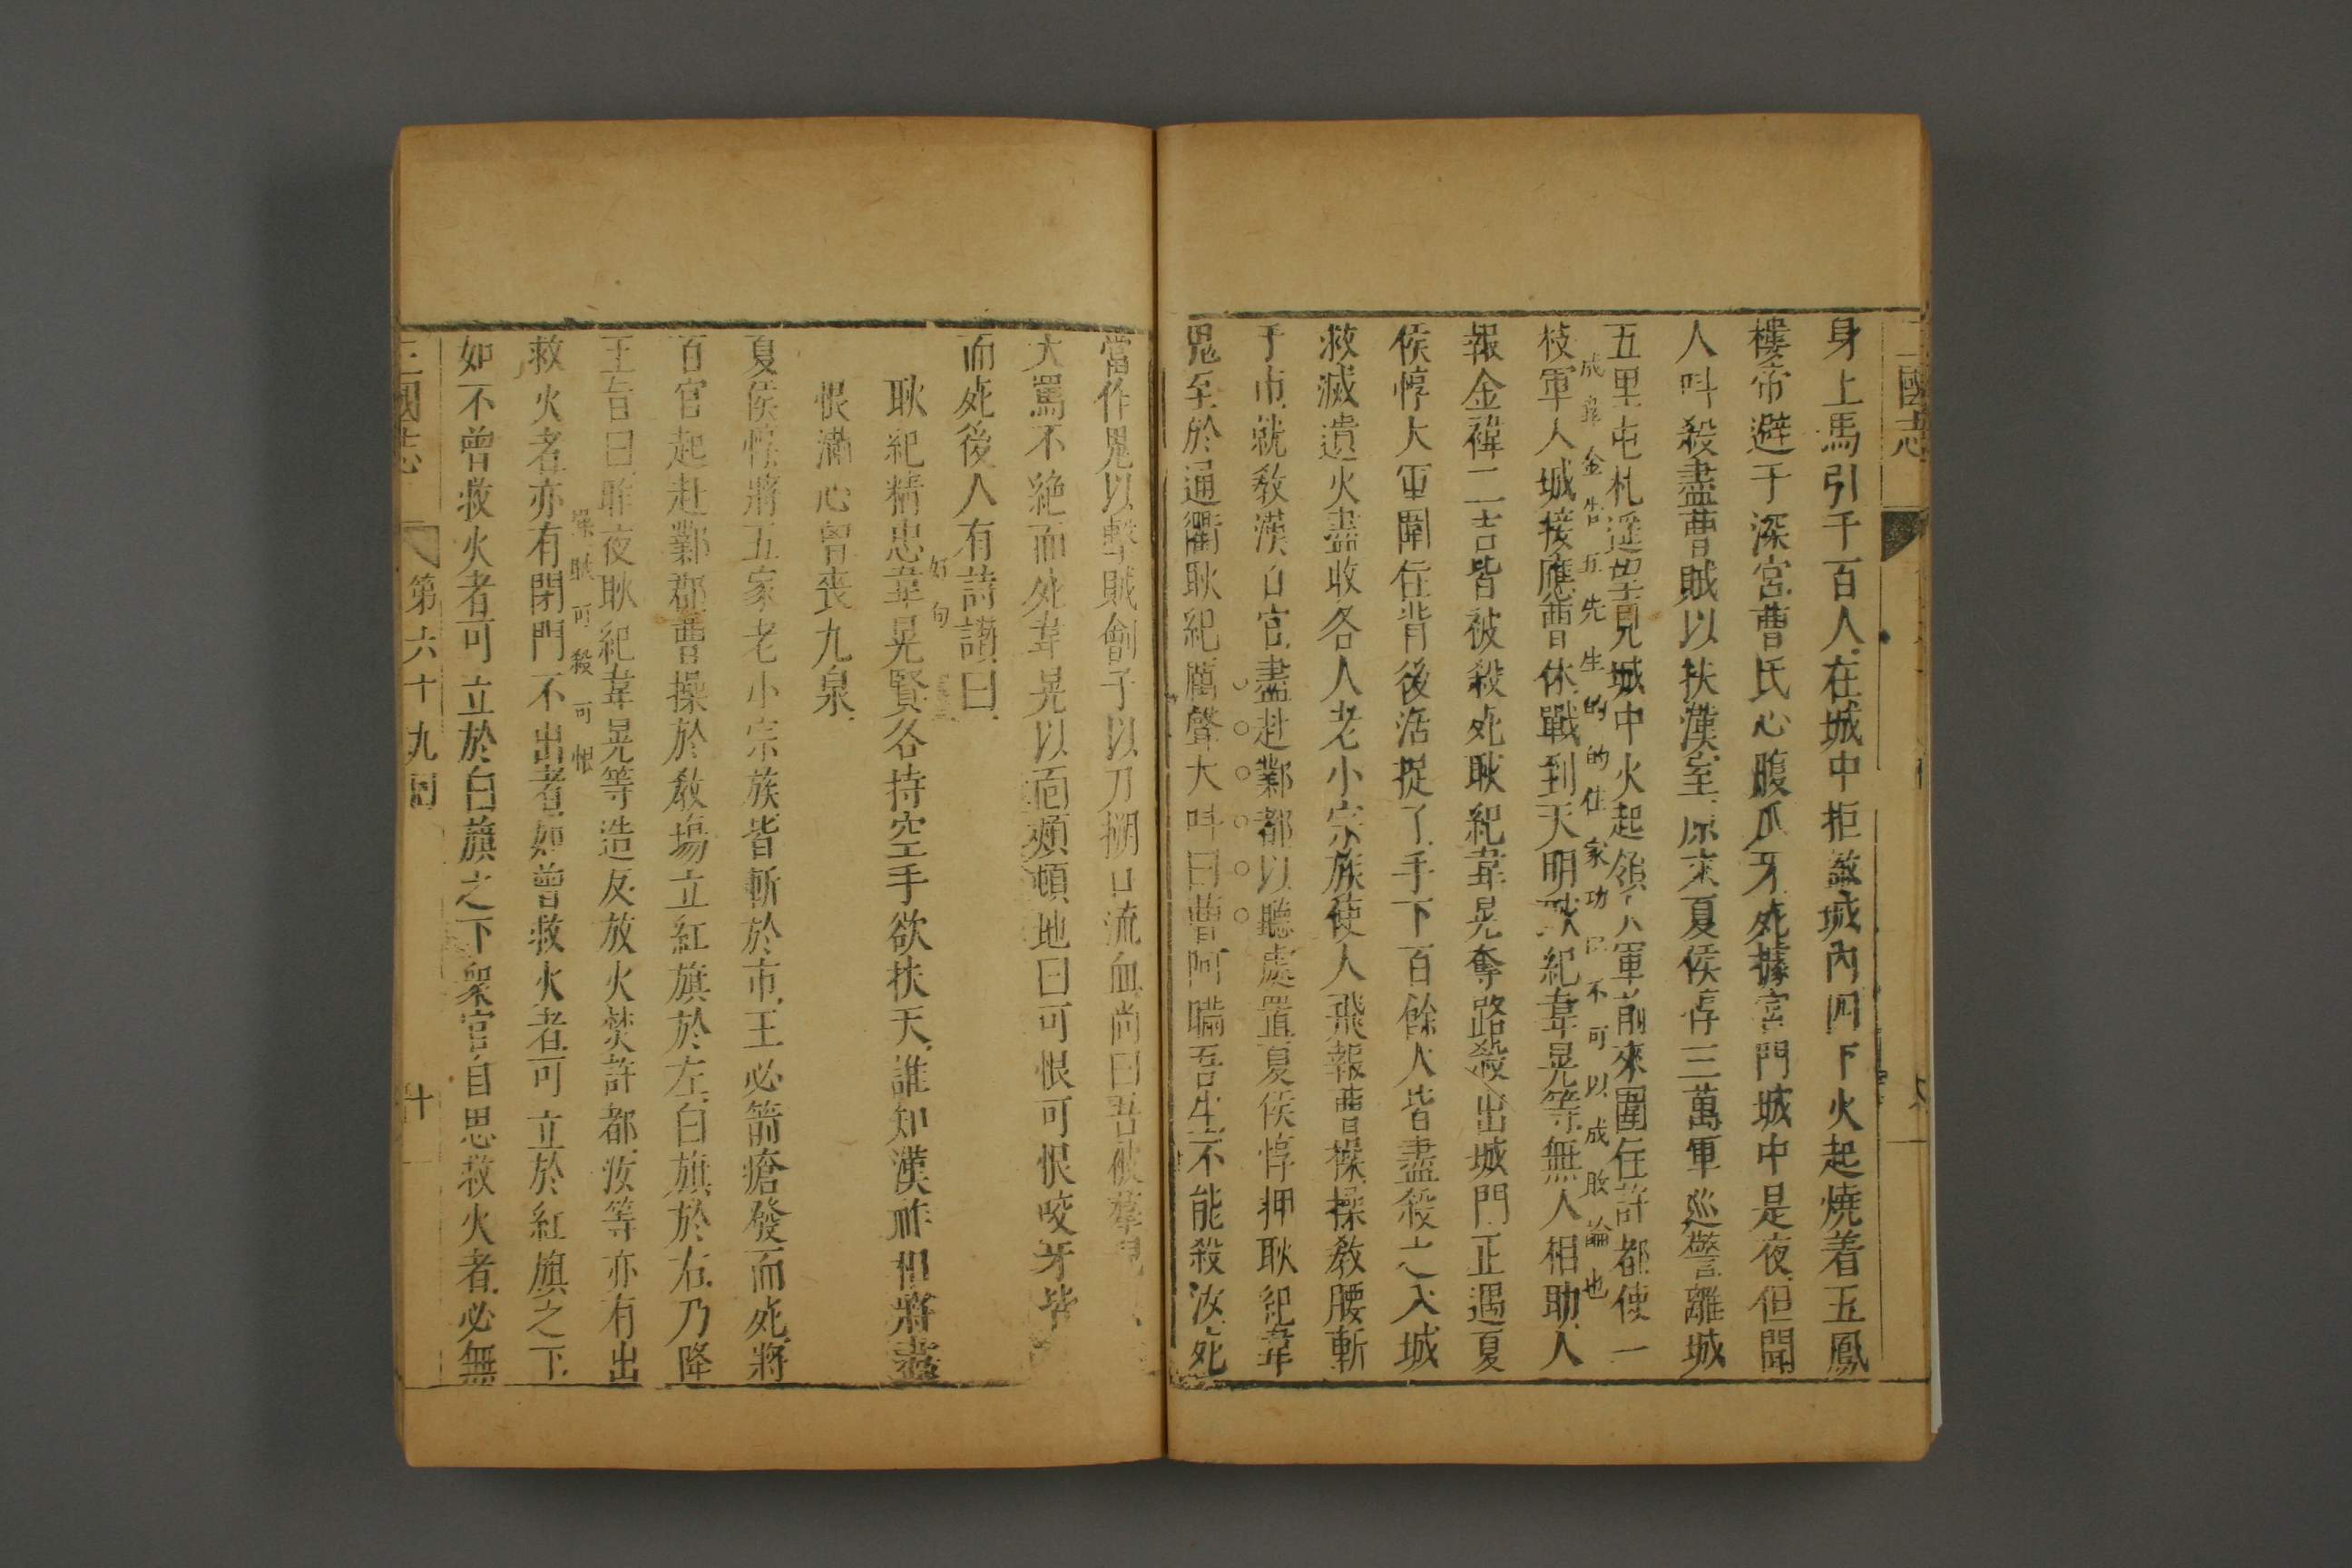 三國志
身上馬引千百人在城中拒敵城內四下火起燒着五鳳
樓帝避于深宮曹氏心腹爪牙死據宮門城中是夜但聞
人叫殺盡曹賊以扶漢室原來夏侯惇三萬軍巡警離城
五里屯札遥望見城中火起領大軍前來圍住許都使一
成韋金吉五先生的的住家功已不可以成敗論也
枝軍入城接應曹休戰到天明耿紀韋晃等無人相助人
報金禕二吉皆被殺死耿紀韋晃奪路殺出城門正遇夏
侯惇大軍圍住背後活捉了手下百餘人皆盡殺之入城
救滅遺火盡收各人老小宗族使人飛報曹操操敎腰斬
于市就敎漢百官盡赴鄴都以聽處置夏侯惇押耿紀韋
晃至於通衢耿紀厲聲大叫曰曹阿瞞吾生不能殺汝死
當作鬼以擊賊劊子以刀搠口流血尚曰吾
大罵不絶而死韋晃以面頰頓地曰可恨可恨咬牙皆
而死後人有詩讃曰
好句
耿紀精忠韋晃賢各持空手欲扶天誰知漢祚相將盡
恨滿心胷喪九泉
夏侯惇將五家老小宗族皆斬於市王必箭瘡發而死將
百官起赴鄴郡曹操於敎場立紅旗於左白旗於右乃降
王旨曰昨夜耿紀韋晃等造反放火焚許都汝等亦有出
賊可殺可恨
救火者亦有閉門不出者如曾救火者可立於紅旗之下
如不曾救火者可立於白旗之下衆官自思救火者必無
三國志
第六十九回
十